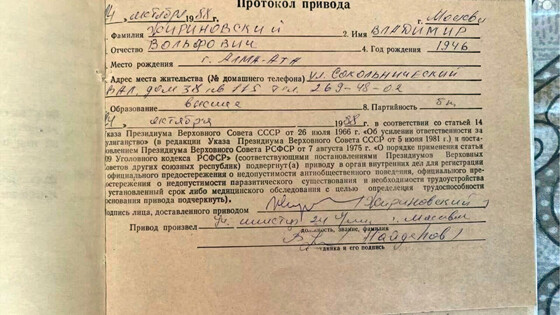 Протокол привода
14 октября 1988 г. г. Москва
1. Фамилия Жириновский 2. Имя ВЛАДИМИР
3. Отчество Вольфович 4. Год рождения 1946
5. Место рождения г. АЛМА-АТА
Адрес места жительства (№ домашнего телефона) ул. Сокольнический
ВАЛ, дом 38 кв 175 тел. 269-48-02
Образование высшее 8. Партийность б/п.
14 октября 1988 г. в соответствии со статьей 14
Указа Президиума Верховного Совета СССР от 26 июля 1966 г. «Об усилении ответственности за
хулиганство» (в редакции Указа Президиума Верховного Совета СССР от 5 июня 1981 г.) и поста-
новлением Президиума Верховного Совета РСФСР от 7 августа 1975 г. «О порядке применения статьи
209 Уголовного кодекса РСФСР» (соответствующими постановлениями Президиумов Верховных
Советов других союзных республик) подвергнут(а) приводу в орган внутренних дел для регистрации
официального предостережения о недопустимости антиобщественного поведения, официального пре-
достережения о недопустимости паразитического существования и необходимости трудоустройства
установленный срок либо медицинского обследования с целью определения трудоспособности
(основания привода подчеркнуть).
Подпись лица, доставленного приводом Жириновский
Привод произвел г. Москвы
должность, звание, фамилия
Найденов
и его подпись